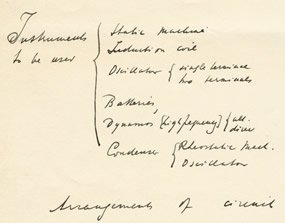 Instruments to be used
Static machine
Induction coil
Oscillator { single terminal
two terminals
Batteries,
Dynamos {high frequency} { alt.
direc
Condenser { Rheostatic Mach.
Oscillator
Arrangements of circuit